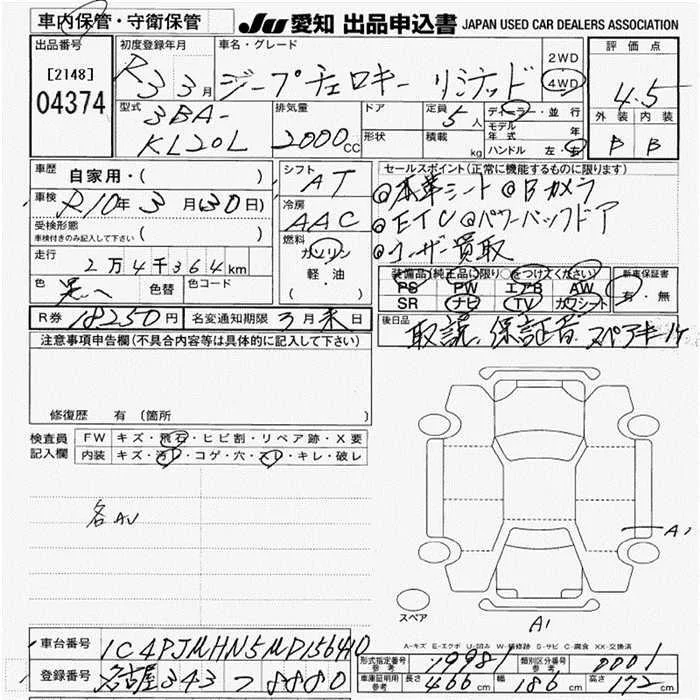 車内保管・守衛保管
JU 愛知 出品申込書 JAPAN USED CAR DEALERS ASSOCIATION
出品番号
[2148]
04374
初度登録年月
R3 3月
車名・グレード
ジープチェロキー リミテッド
2WD
4WD
評価点
4.5
外装 内装
B B
型式
3BA-
KL20L
排気量
2000cc
ドア
形状
定員 5人
積載 kg
ディーラー・並行
モデル年式 年
ハンドル 左・右
車歴 自家用・( )
車検 R10年 3月(30日)
受検形態
車検付きのみ記入して下さい ( )
走行 2万4千364km
色 黒 色替 色コード
シフト
AT
冷房
AAC
燃料
ガソリン
軽・油
( ・ )
セールスポイント(正常に機能するものに限ります)
◎本革シート ◎Bカメラ
◎ETC ◎パワーバックドア
◎ユーザー買取
装備品(純正品に限り○をつけてください)
PS PW エアB AW
SR ナビ TV カワシート
新車保証書
有・無
R券 18250円 名変通知期限 3月末日
後日品
取説 保証書 スペアキー1ケ
注意事項申告欄(不具合内容等は具体的に記入して下さい)
修復歴 有 (箇所 )
検査員
記入欄
FW キズ・飛石・ヒビ割・リペア跡・X要
内装 キズ・汚レ・コゲ・穴・スレ・キレ・破レ
各AU
A1
スペア
A1
A-キズ E-エクボ U-凹み W-補修跡 S-サビ C-腐食 XX-交換済
車台番号 1C4PJMHN5MD156410
登録番号 名古屋 343 つ 8880
形式指定番号
参考 19981
類別区分番号
参考 0001
車庫証明用
参考 長さ 466cm 幅 186cm 高さ 172cm